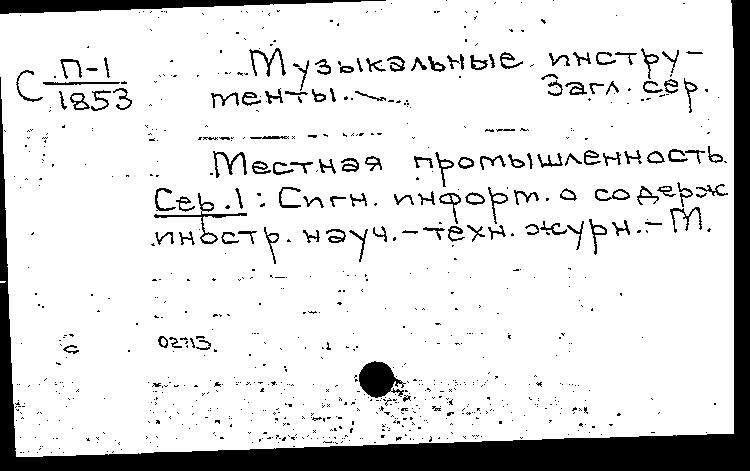 С П-1
1853
Музыкальные инстру-
менты. Загл. сер.
Местная промышленность.
Сер. 1: Сигн. информ. о содерж
иностр. науч.-техн. журн.-М.
02713.